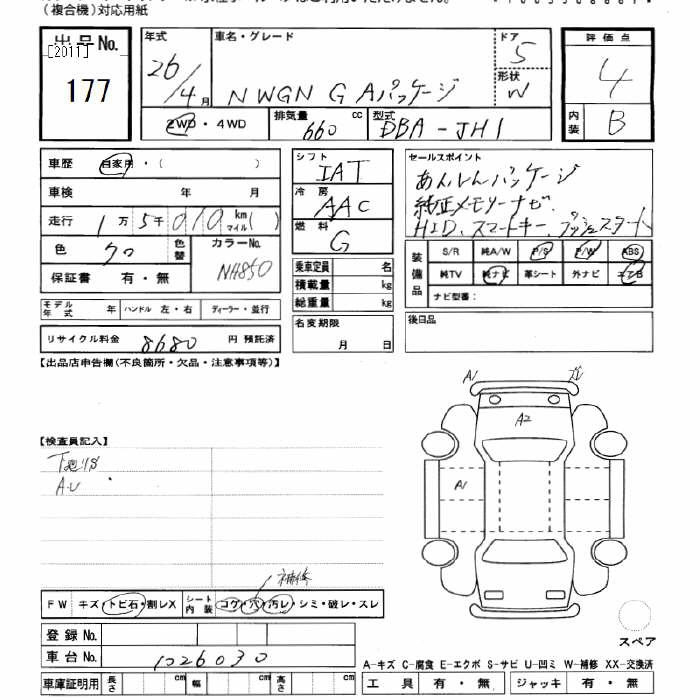 （複合機）対応用紙
出品No.
[2011]
177
年式
26/4月
車名・グレード
NWGN G Aパッケージ
ドア
5
形状
W
評価点
4
内装
B
2WD・4WD
排気量
660 cc
型式
DBA-JH1
車歴 自家用・（ ）
車検 年 月
走行 1万 5千 010 km マイル ( )
色 クロ 色替
カラーNo.
NH850
保証書 有・無
モデル年式 年 ハンドル 左・右 ディーラー・並行
リサイクル料金 8680 円 預託済
シフト
IAT
冷房
AAC
燃料
G
乗車定員 名
積載量 kg
総重量 kg
名変期限
月 日
セールスポイント
あんしんパッケージ
純正メモリーナビ、
HID、スマートキー、プッシュスタート
装備品
S/R 純A/W P/S P/W ABS
純TV 純ナビ 革シート 外ナビ エアB
ナビ型番：
後日品
【出品店申告欄(不良箇所・欠品・注意事項等)】
【検査員記入】
A・U
A1
A2
A1
補修
FW キズ・トビ石・割レX
シート内装 コゲ・穴・汚レ・シミ・破レ・スレ
登録No.
車台No. 1026030
車庫証明用 長さ cm 幅 cm 高さ cm
スペア
A-キズ C-腐食 E-エクボ S-サビ U-凹ミ W-補修 XX-交換済
工具 有・無 ジャッキ 有・無